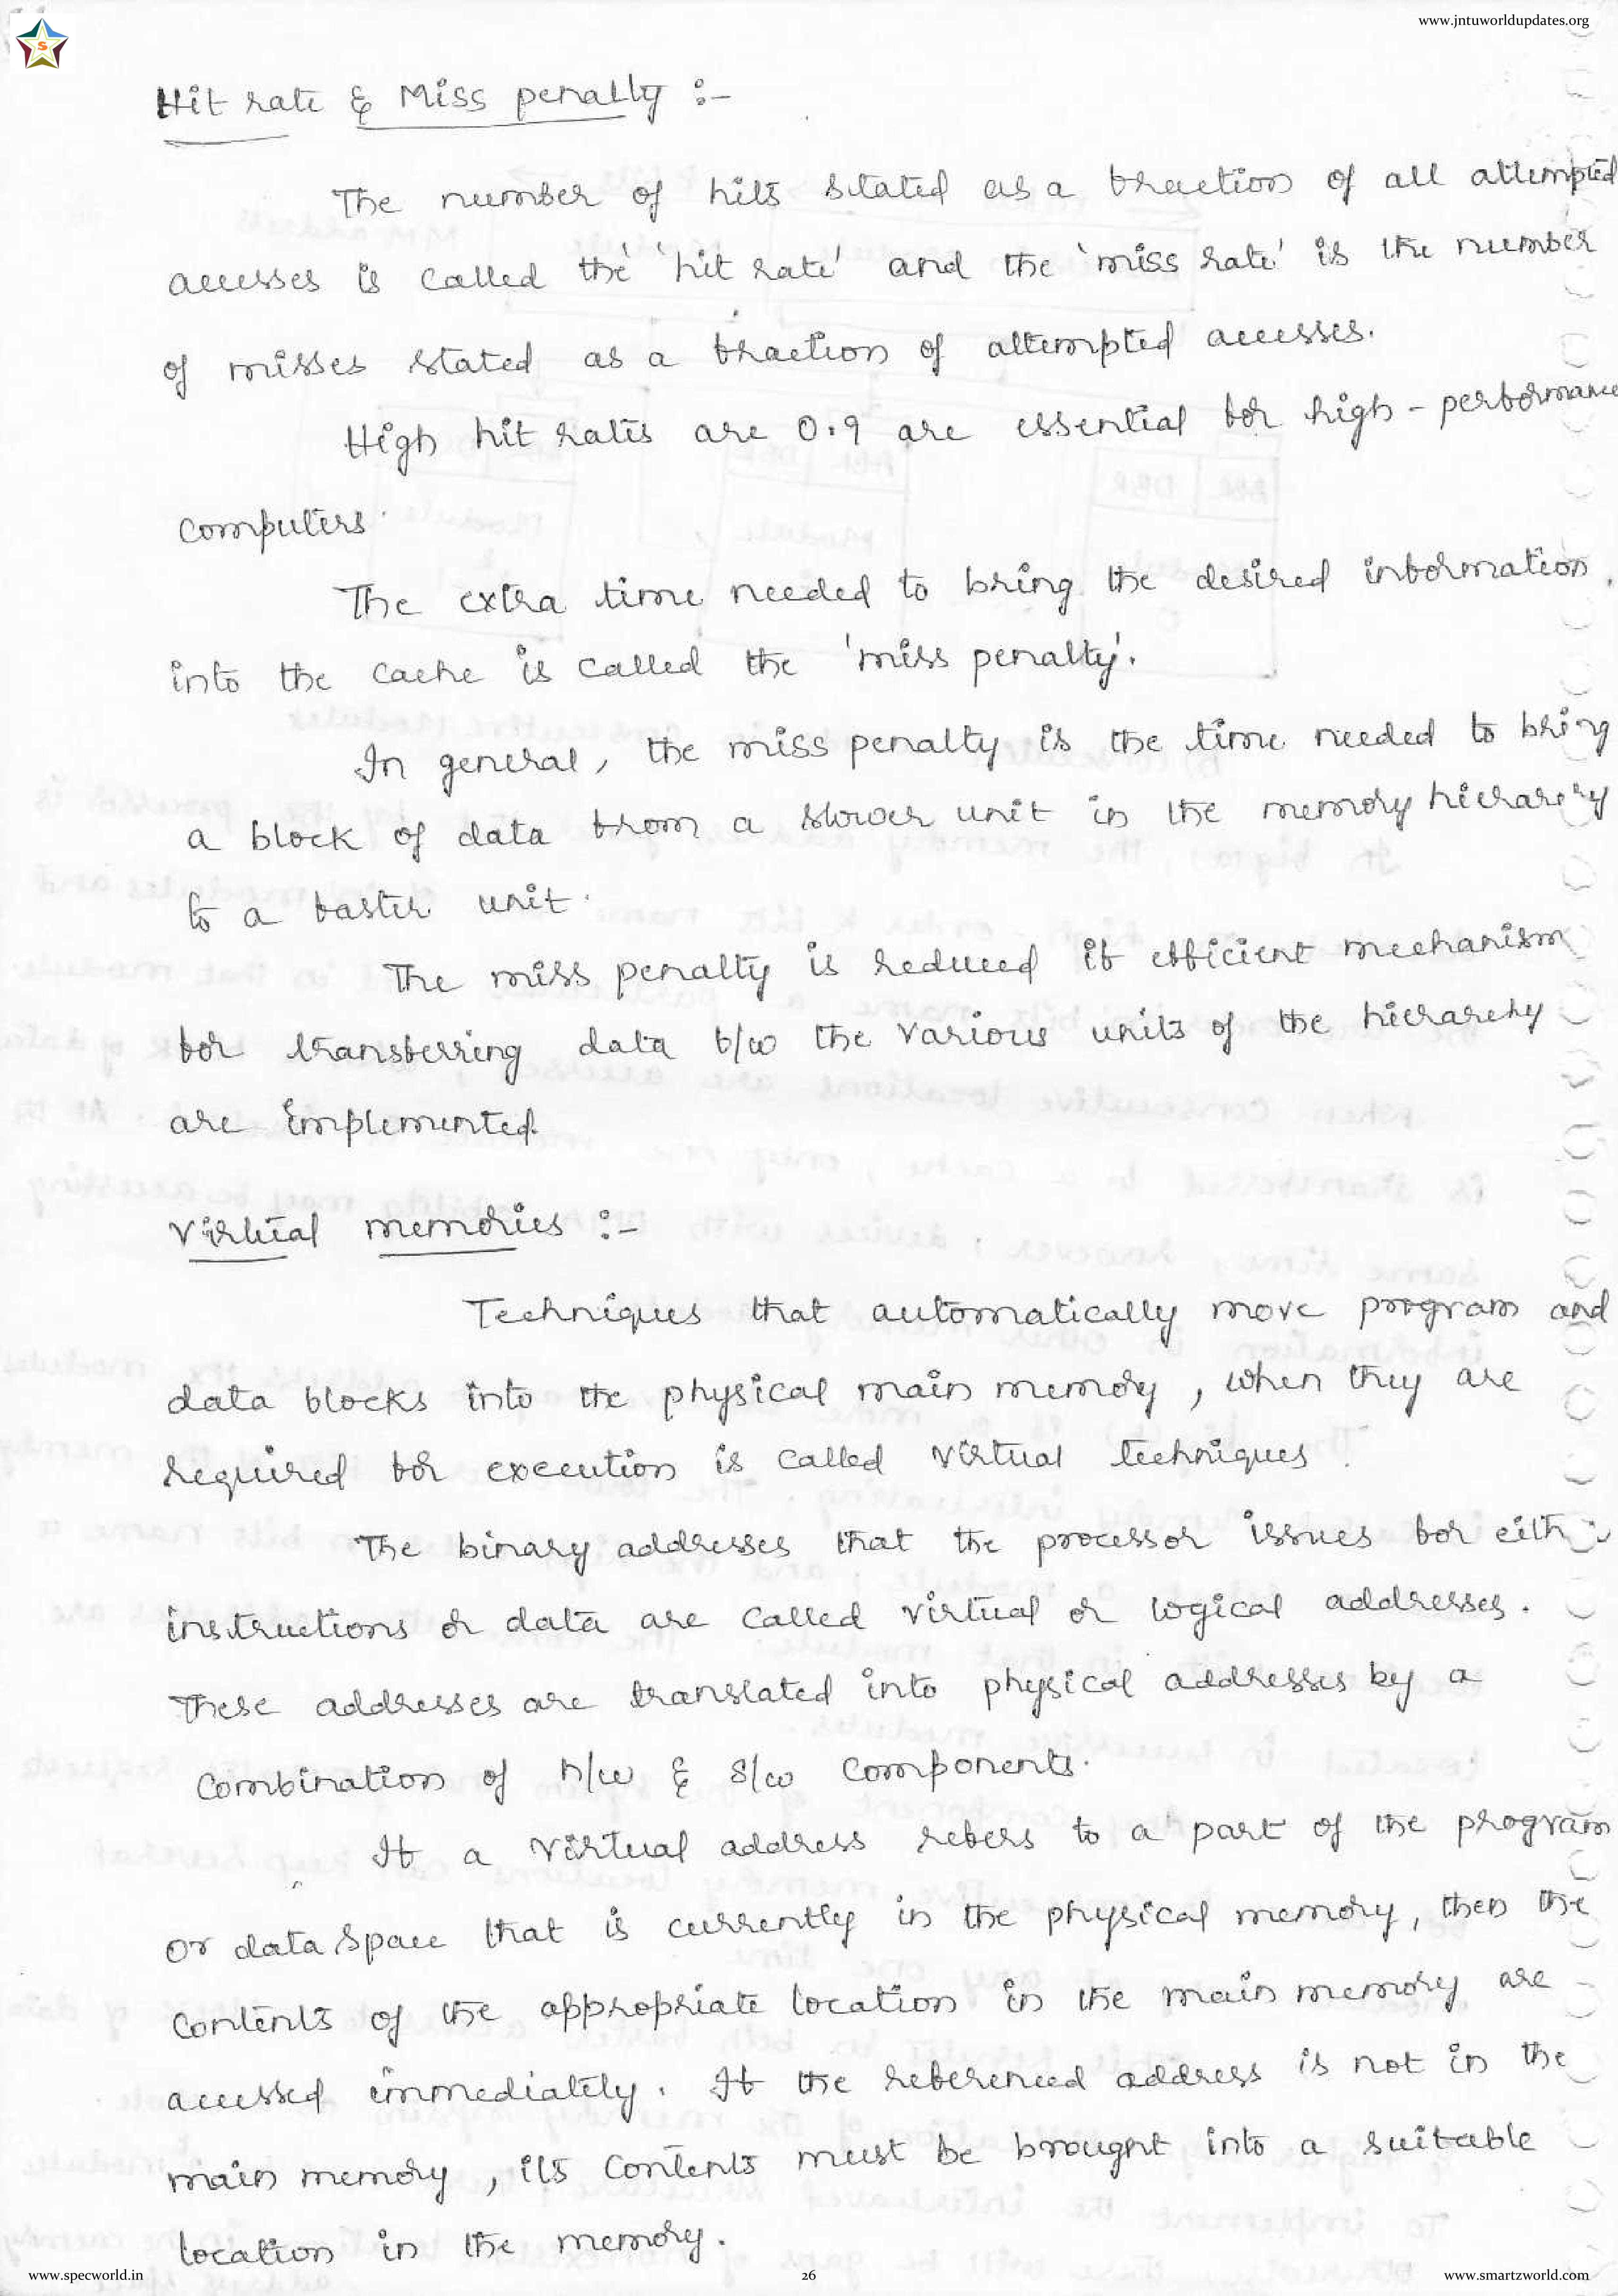 www.jntuworldupdates.org
S
Hit rate & Miss penalty :-
The number of hits stated as a fraction of all attempted
accesses is called the 'hit rate' and the 'miss rate' is the number
of misses stated as a fraction of attempted accesses.
High hit rates are 0.9 are essential for high-performance
computers.
The extra time needed to bring the desired information
into the cache is called the 'miss penalty'.
In general, the miss penalty is the time needed to bring
a block of data from a slower unit in the memory hierarchy
to a faster unit.
The miss penalty is reduced if efficient mechanism
for transferring data b/w the various units of the hierarchy
are implemented.
Virtual memories :-
Techniques that automatically move program and
data blocks into the physical main memory, when they are
required for execution is called virtual techniques.
The binary addresses that the processor issues for either
instructions or data are called virtual or logical addresses.
These addresses are translated into physical addresses by a
combination of h/w & s/w components.
If a virtual address refers to a part of the program
or data space that is currently in the physical memory, then the
contents of the appropriate location in the main memory are
accessed immediately. If the referenced address is not in the
main memory, its contents must be brought into a suitable
location in the memory.
www.specworld.in
26
www.smartzworld.com